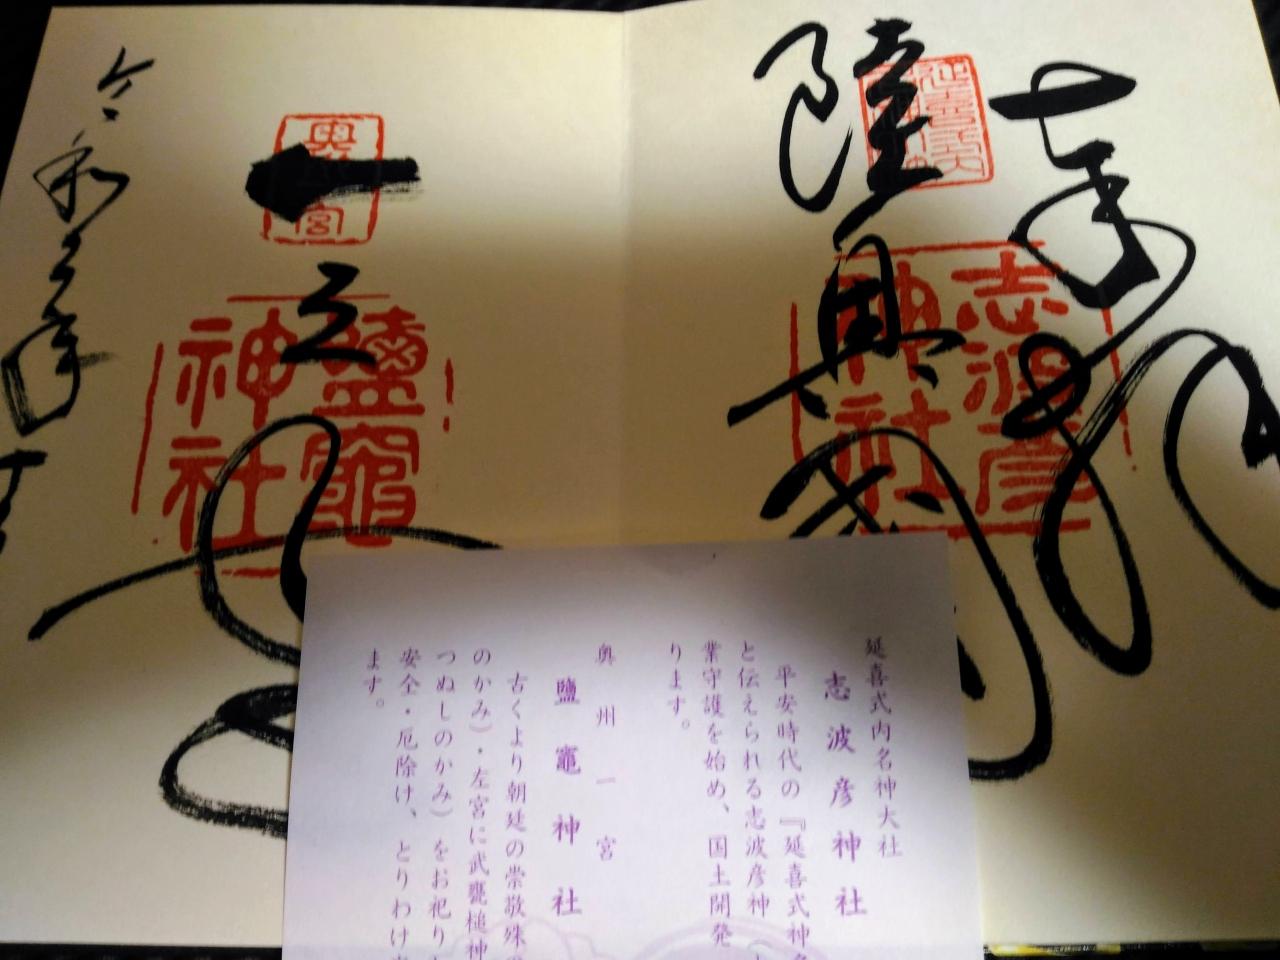 奉拝
陸奥國
志波彦
神社
一之宮
鹽竈
神社
令和
延喜式内名神大社
志波彦神社
平安時代の『延喜式神名
と伝えられる志波彦神
業守護を始め、国土開発
ります。
奥州一宮
鹽竈神社
古くより朝廷の崇敬殊の
のかみ）・左宮に武甕槌神
つぬしのかみ）をお祀り
安全・厄除け、とりわけ
ます。